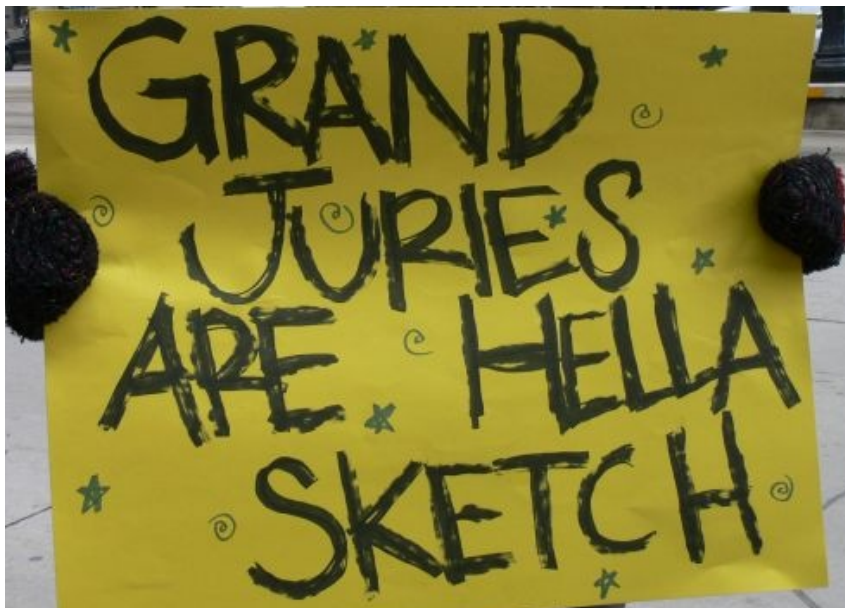 GRAND
JURIES
ARE HELLA
SKETCH